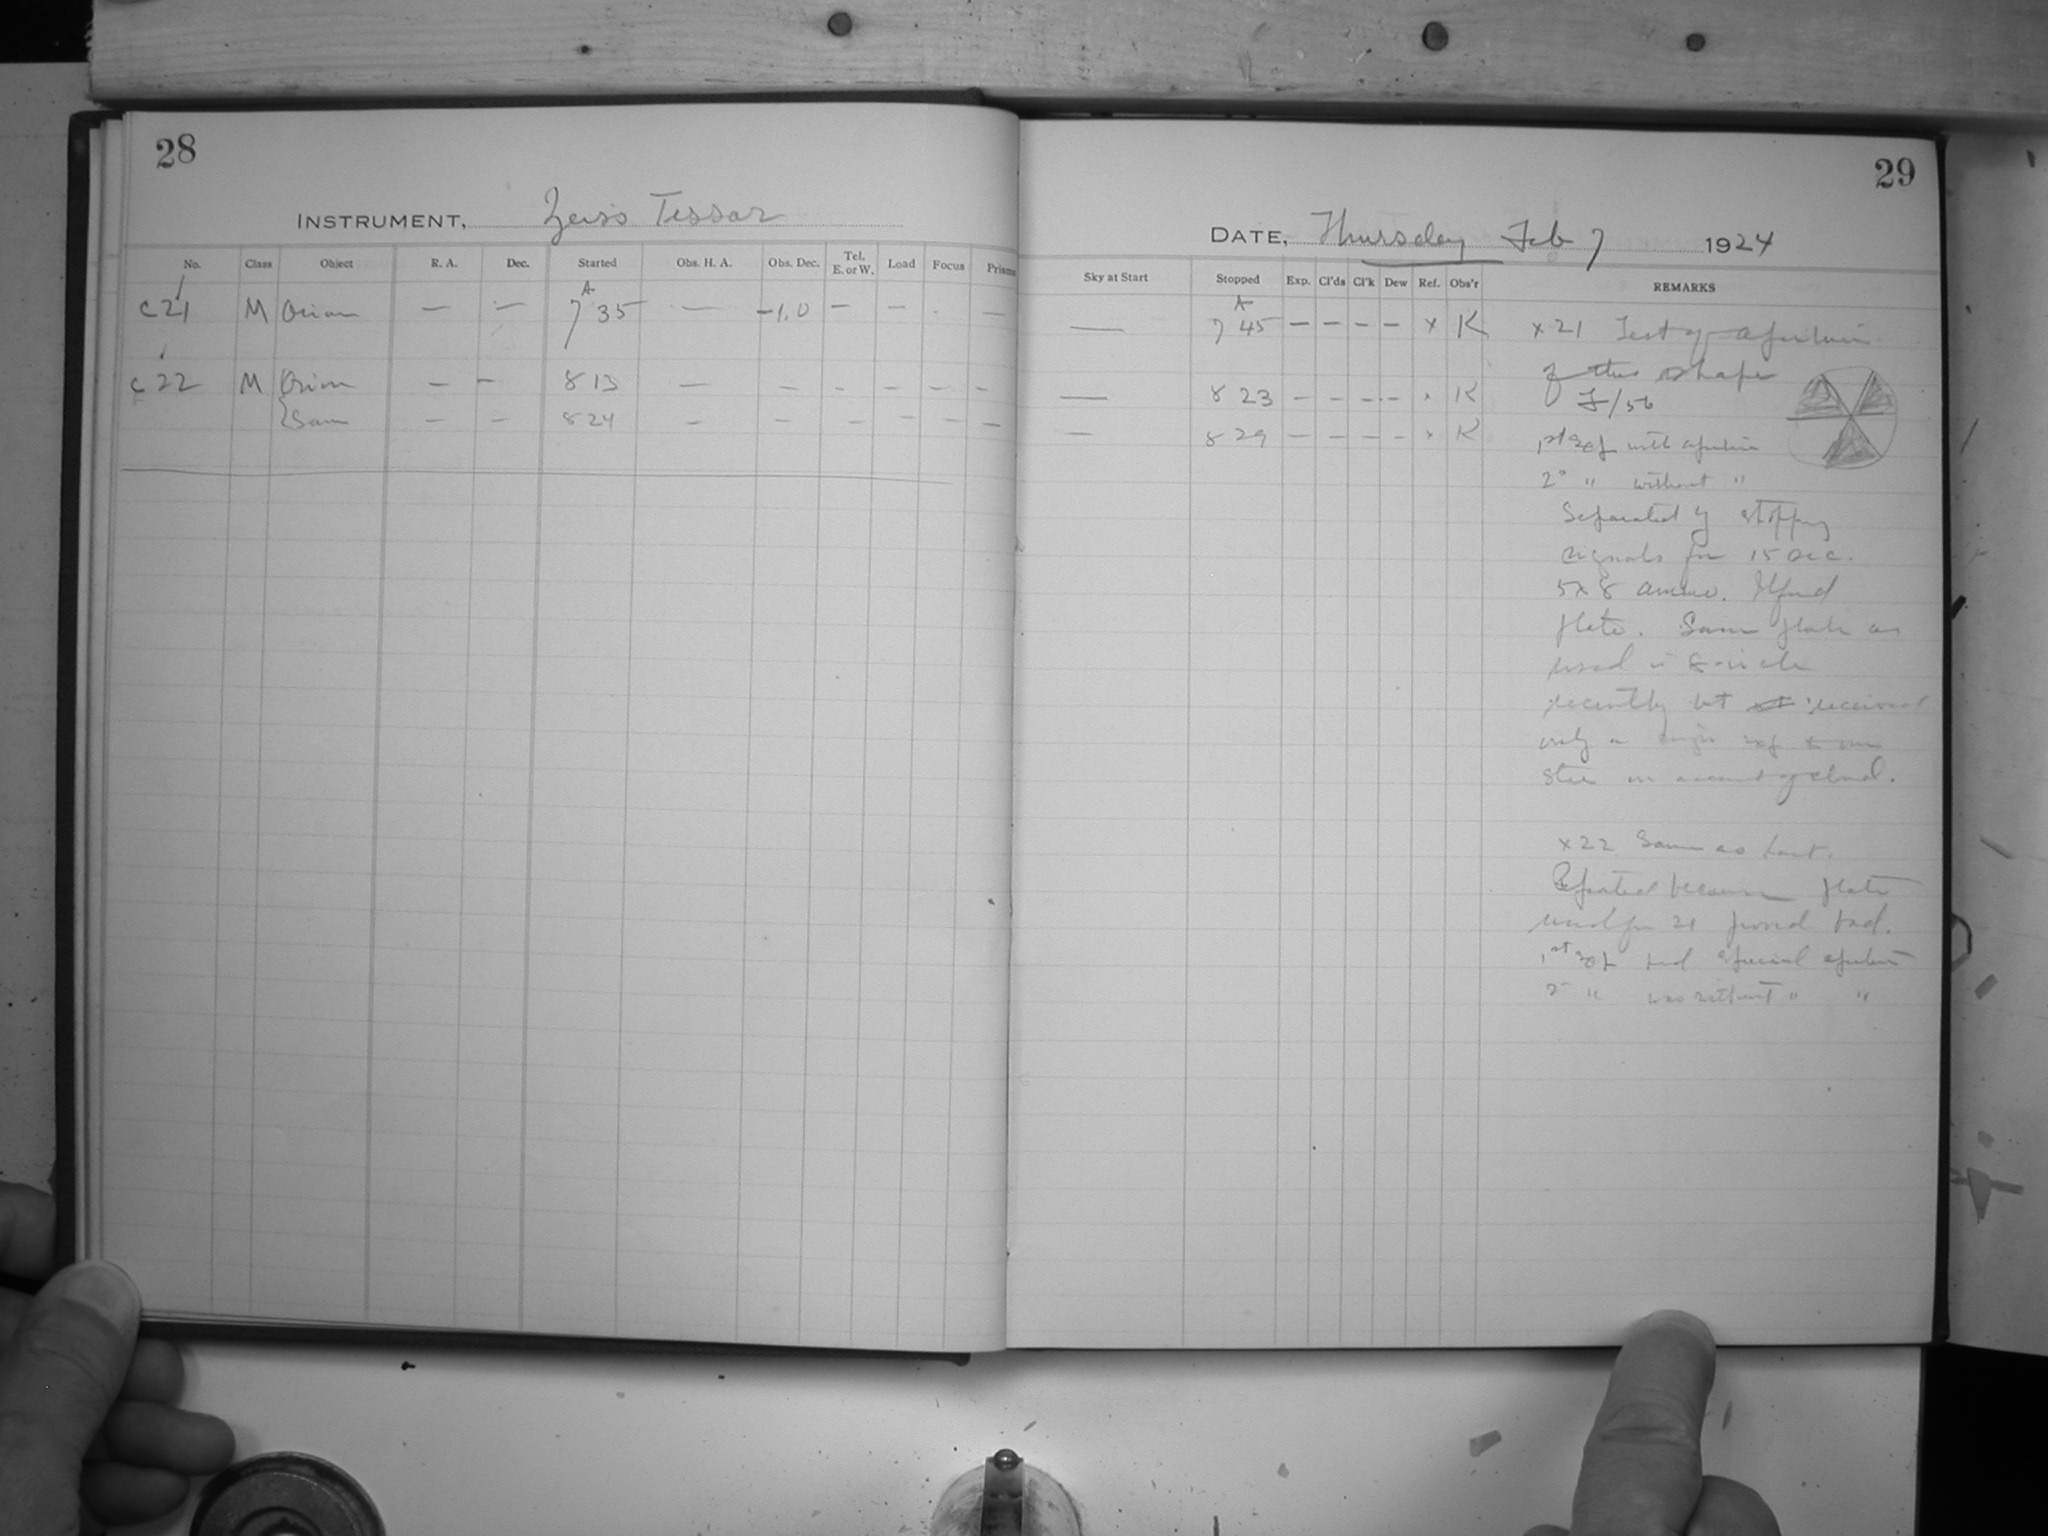 28
INSTRUMENT, Zeiss Tessar
No. Class Object R. A. Dec. Started Obs. H. A. Obs. Dec. Tel. E. or W. Load Focus Prisms
A
C 21 M Orion — — 7 35 — -1.0 — — —
C 22 M Orion — — 8 13 — — — — — —
Same — — 8 24 — — — — — —
29
DATE, Thursday Feb 7 1924
Sky at Start Stopped Exp. Cl'ds Cl'k Dew Ref. Obs'r REMARKS
A
— 7 45 — — — — x K
— 8 23 — — — — K
— 8 29 — — — — x K
x 21 Test of aperture
of this shape
F/56
1st exp with aperture
2° " without "
Separated by stopping
signals for 15 sec.
5x8 Ilford
plate. Same plate as
used in 8-inch
recently but received
only a single exp
on account of cloud.
x 22 Same as last.
Repeated because plate
used for 21 proved bad.
1st exp had special aperture
2° " was without " "